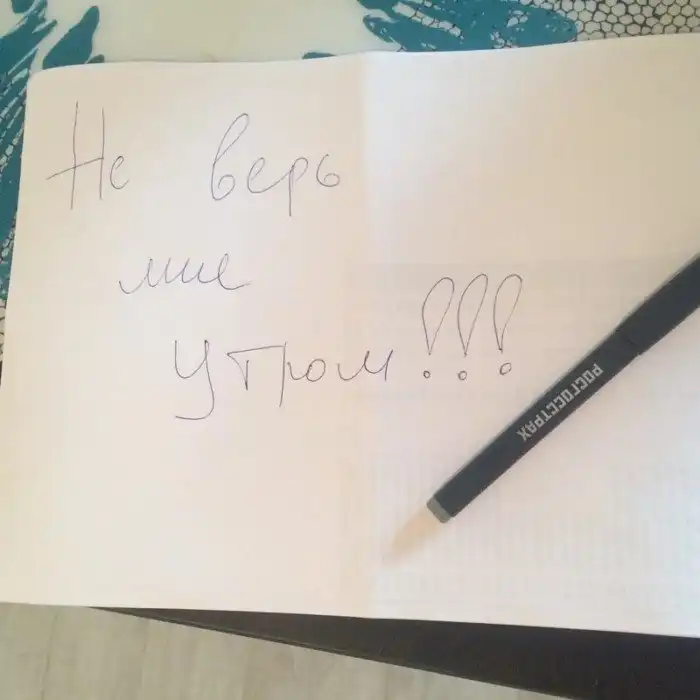 Не верь
мне
утром!!!
РОСГОССТРАХ